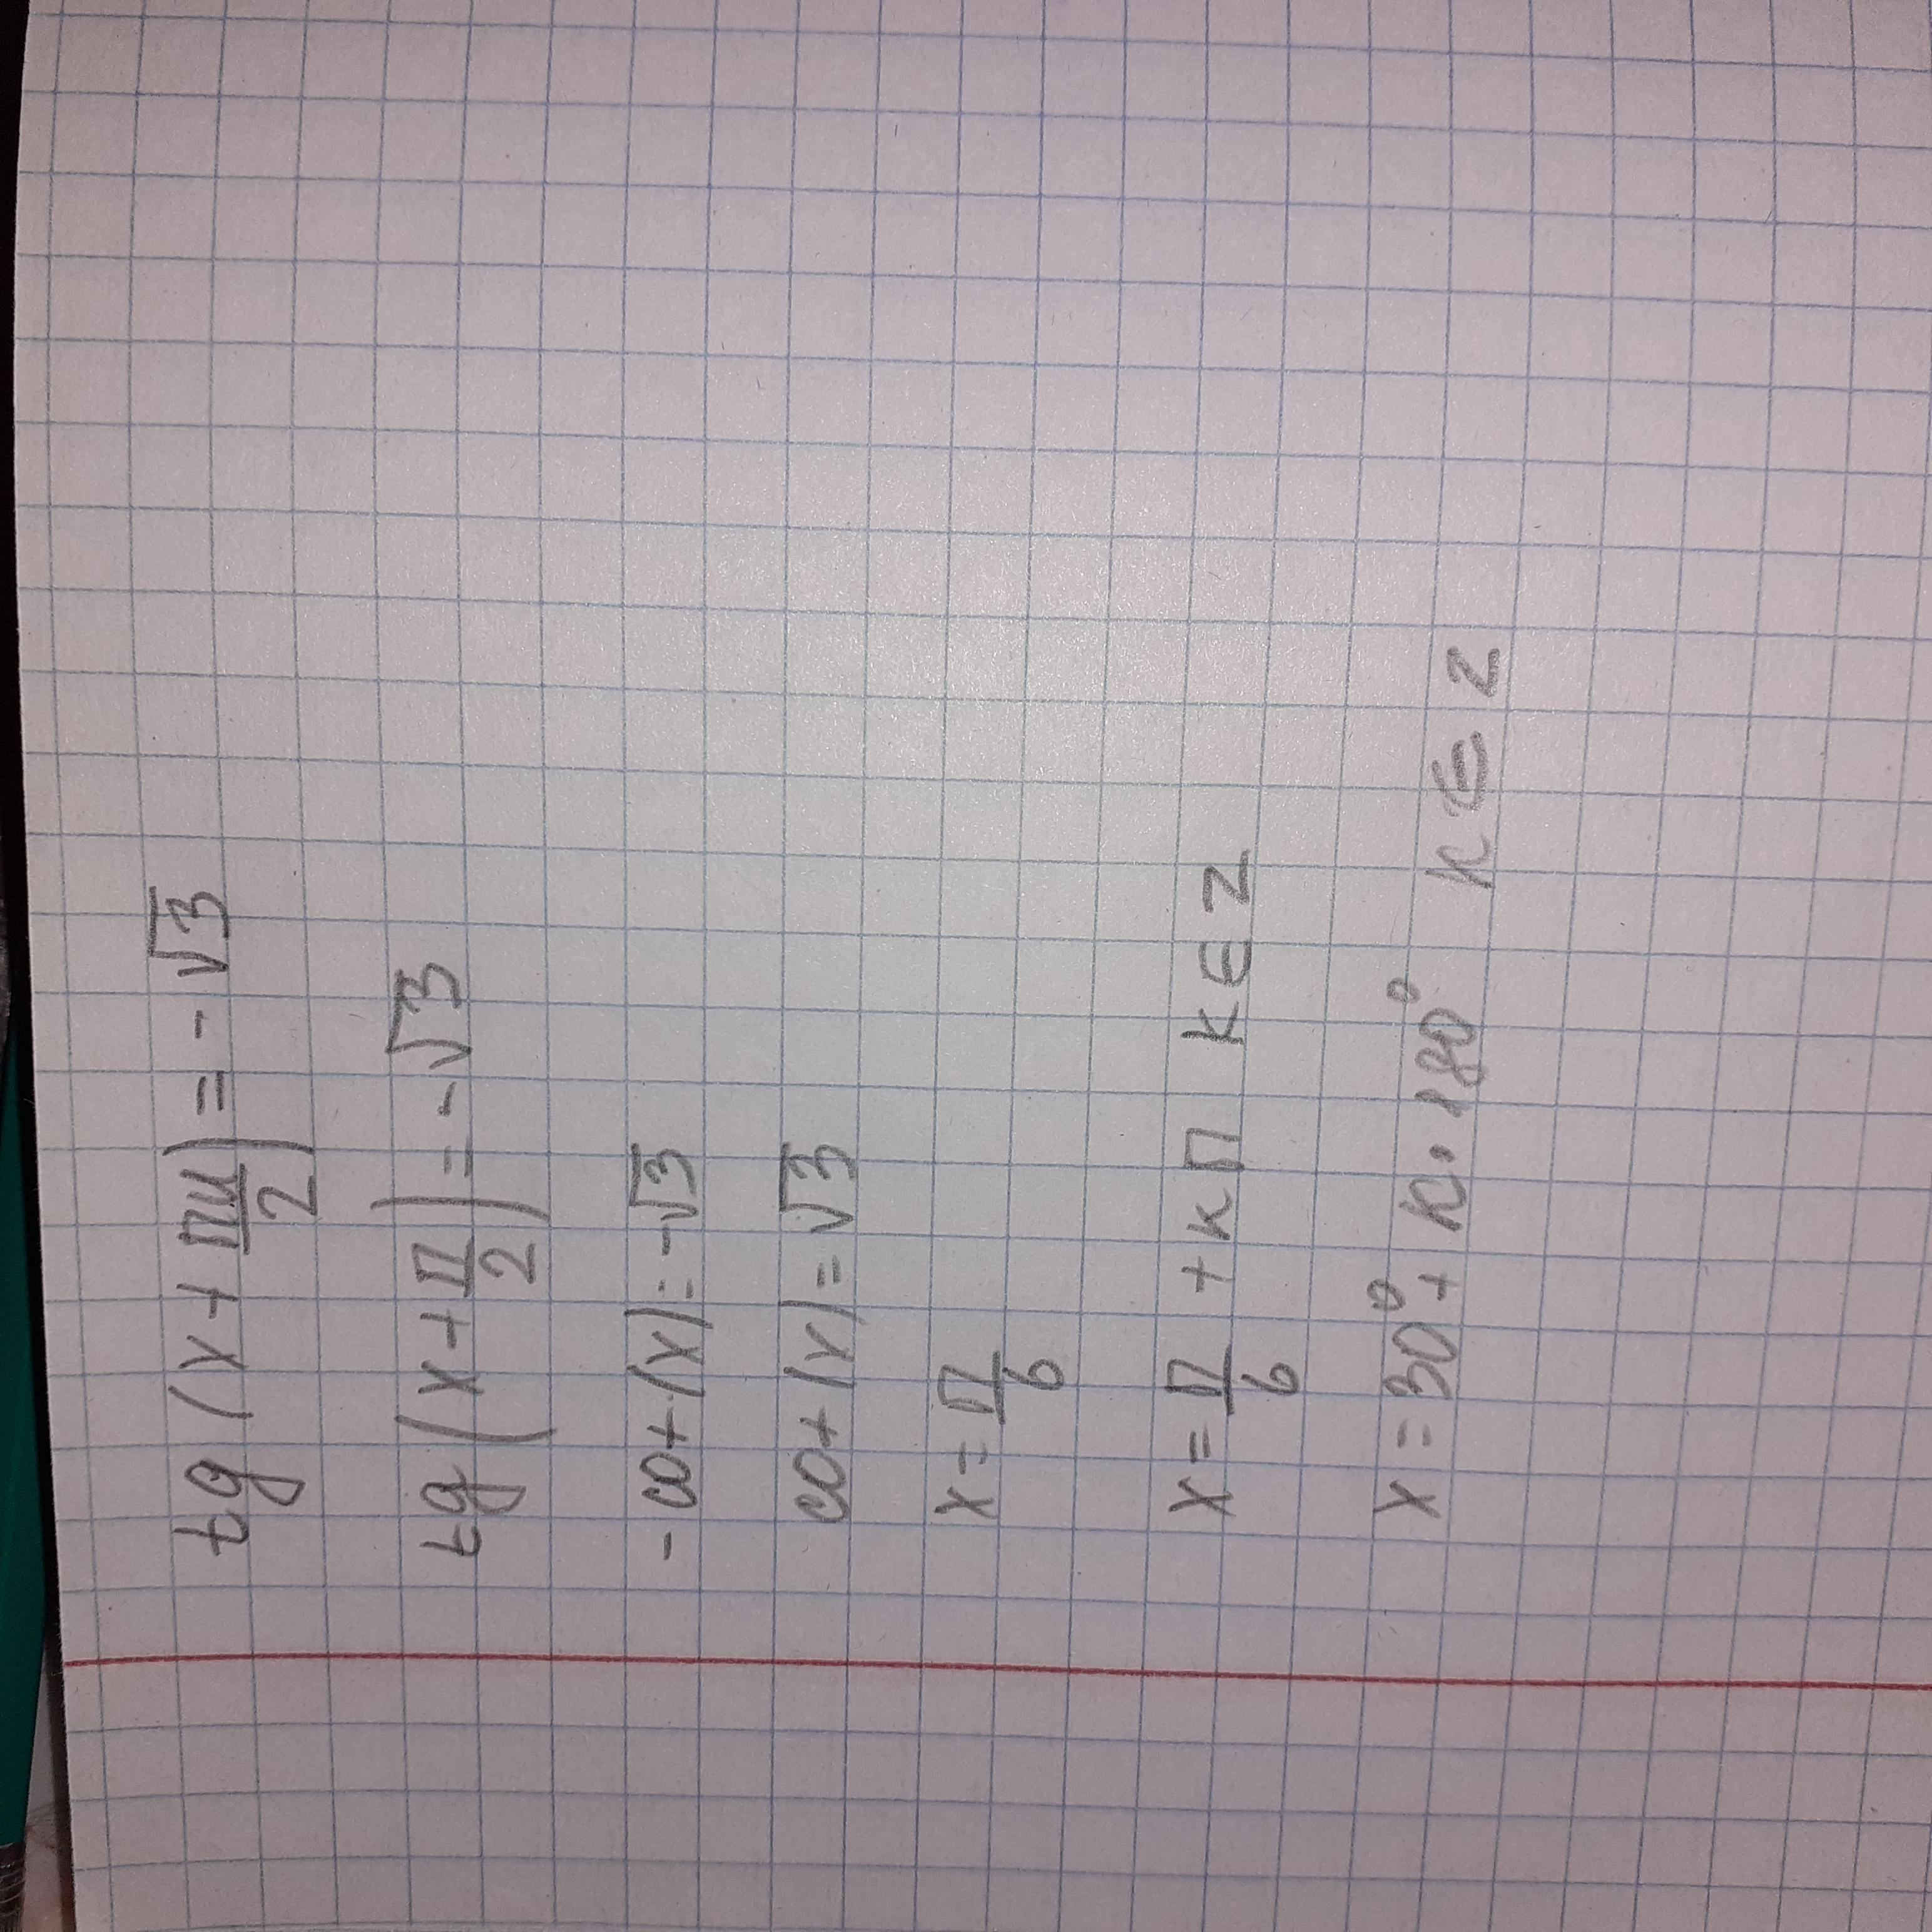 tg (x + пи/2) = -√3
tg (x + П/2) = -√3
-cot (x) = -√3
cot (x) = √3
x = П/6
x = П/6 + kП k∈Z
x = 30° + k·180° k∈Z